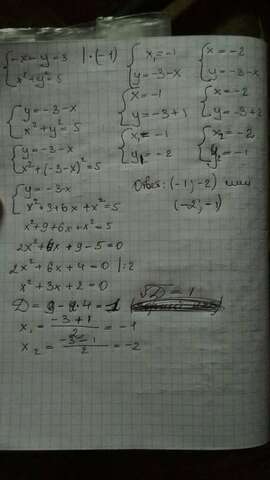 {-x-y=3 | ·(-1)
{x²+y²=5
{y=-3-x
{x²+y²=5
{y=-3-x
{x²+(-3-x)²=5
{y=-3-x
{x²+9+6x+x²=5
x²+9+6x+x²=5
2x²+6x+9-5=0
2x²+6x+4=0 |:2
x²+3x+2=0
D=9-2·4=1
x₁=(-3+1)/2=-1
x₂=(-3-1)/2=-2
{x₁=-1
{y=-3-x
{x=-1
{y=-3+1
{x₁=-1
{y₁=-2
{x=-2
{y=-3-x
{x=-2
{y=-3+2
{x₂=-2
{y₂=-1
Ответ: (-1;-2) или
(-2;-1)
√D=1